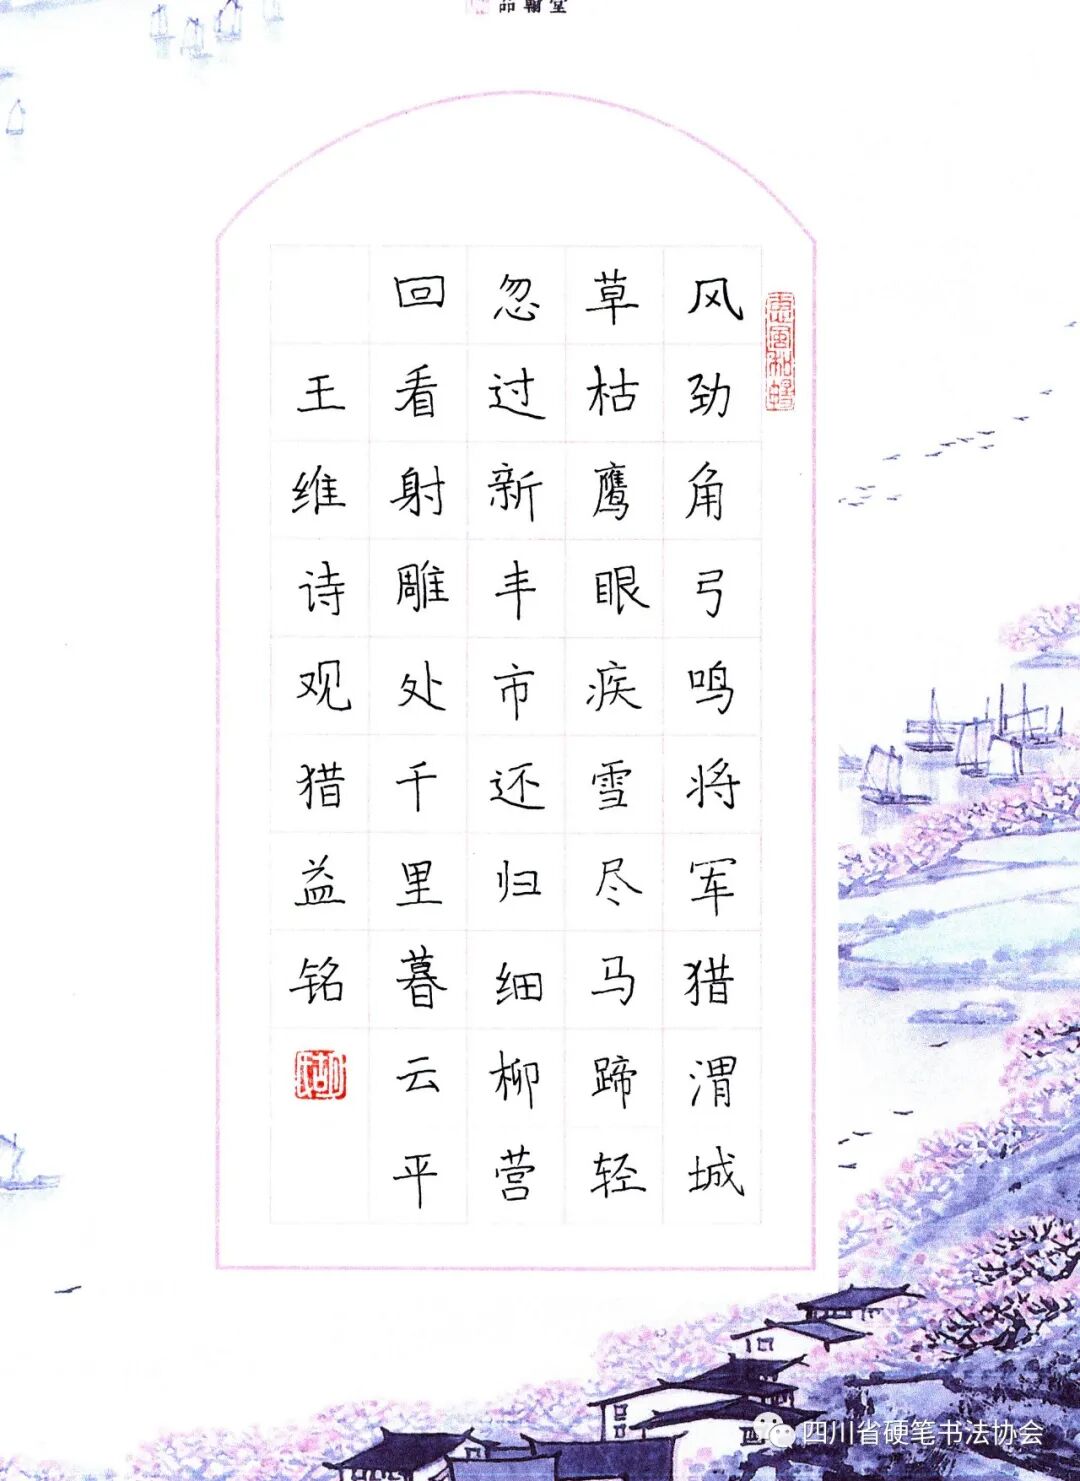 品翰堂
风劲角弓鸣将军猎渭城
草枯鹰眼疾雪尽马蹄轻
忽过新丰市还归细柳营
回看射雕处千里暮云平
王维诗观猎益铭
四川省硬笔书法协会